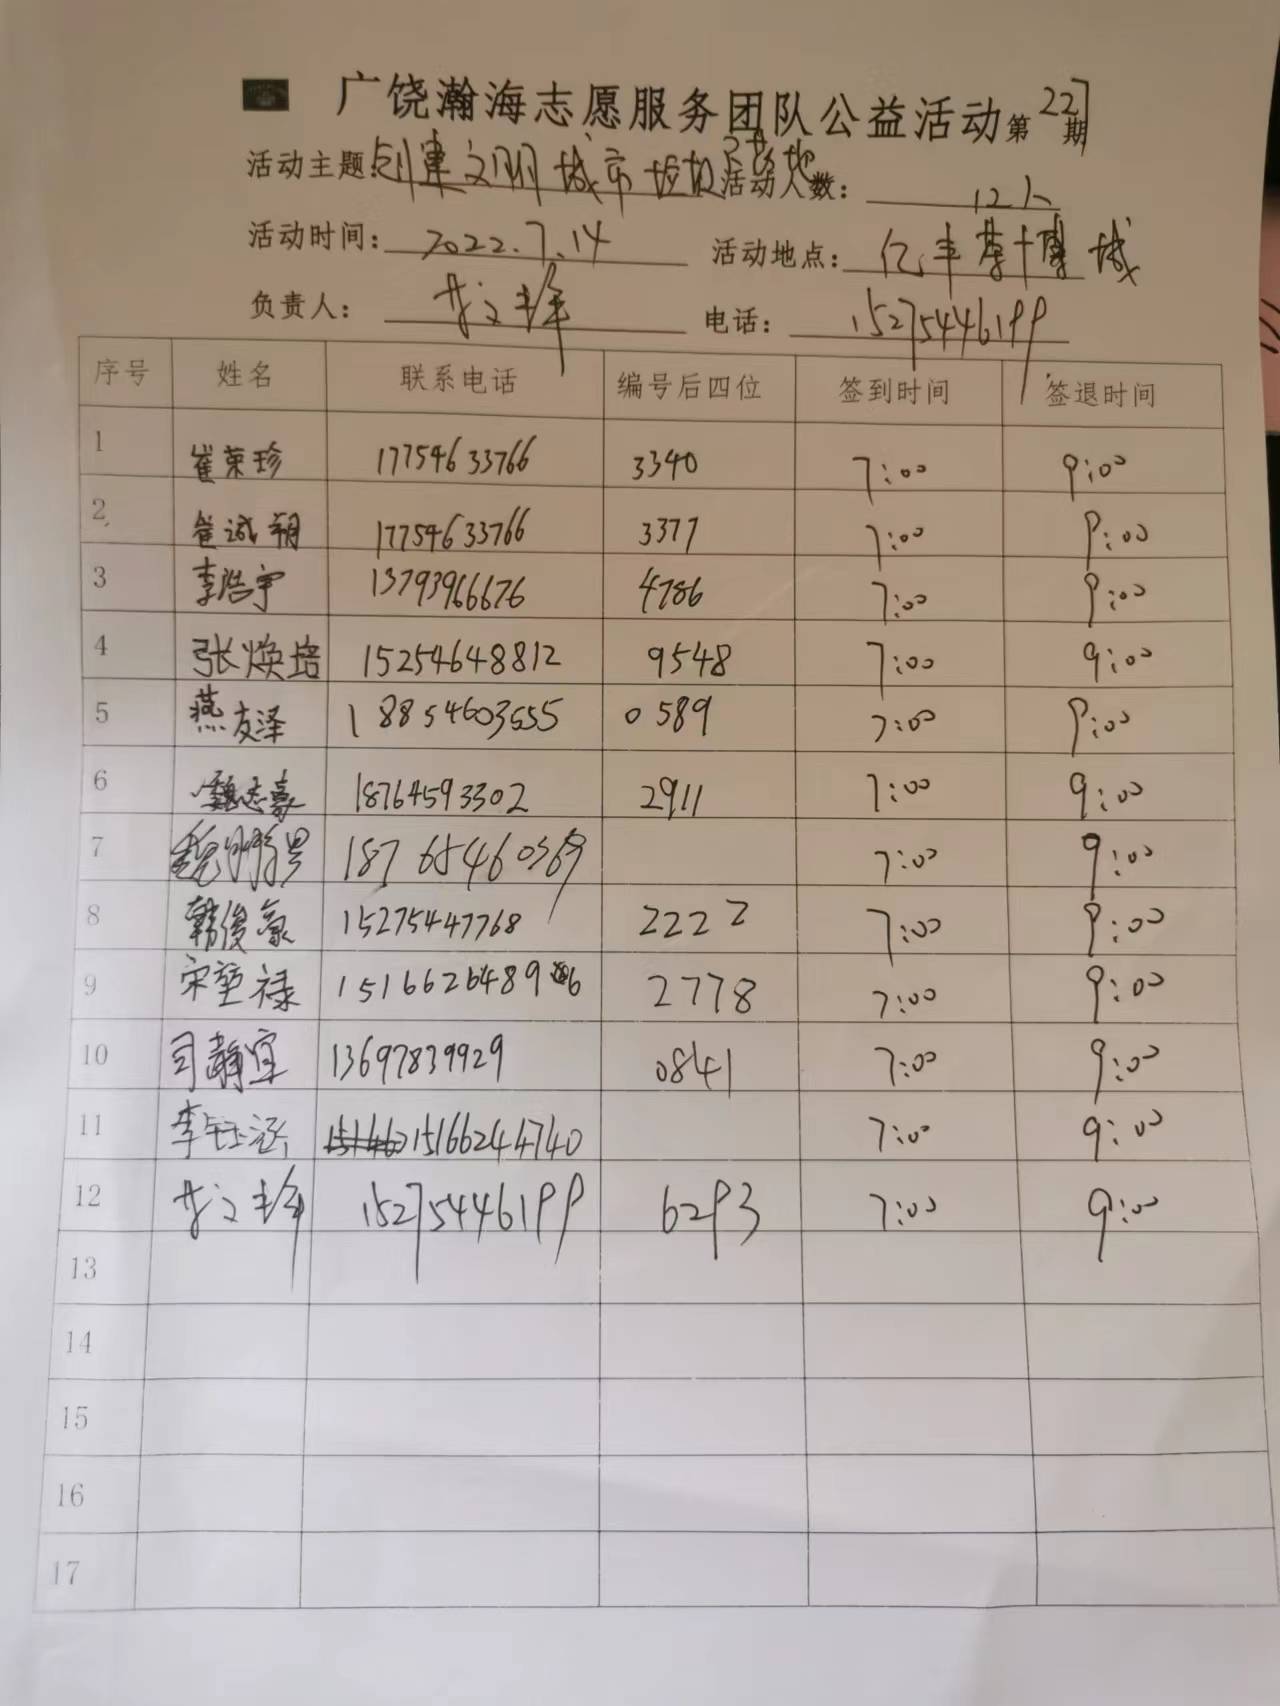 广饶瀚海志愿服务团队公益活动第22期
活动主题: 创建文明城市垃圾不落地 活动人数: 12人
活动时间: 2022.7.14 活动地点: 亿丰 博城
负责人: 电话: 15275446199
序号 姓名 联系电话 编号后四位 签到时间 签退时间
1 崔荣珍 17754633766 3340 7:00 9:00
2 崔诚朝 17754633766 3377 7:00 9:00
3 李浩宇 13793966676 4786 7:00 9:00
4 张焕培 15254648812 9548 7:00 9:00
5 燕友泽 18854603555 0589 7:00 9:00
6 魏志豪 18764593302 2911 7:00 9:00
7 18765460369 7:00 9:00
8 韩俊豪 15275447768 2222 7:00 9:00
9 宋堃禄 2778 7:00 9:00
10 司静宜 13697839929 0841 7:00 9:00
11 李钰涵 15166244740 7:00 9:00
12 15275446199 6293 7:00 9:00
13
14
15
16
17